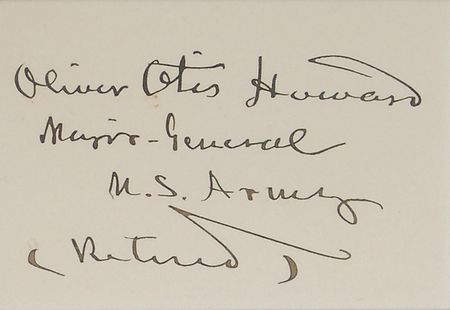 Oliver Otis Howard
Major-General
U.S. Army
(Retired)